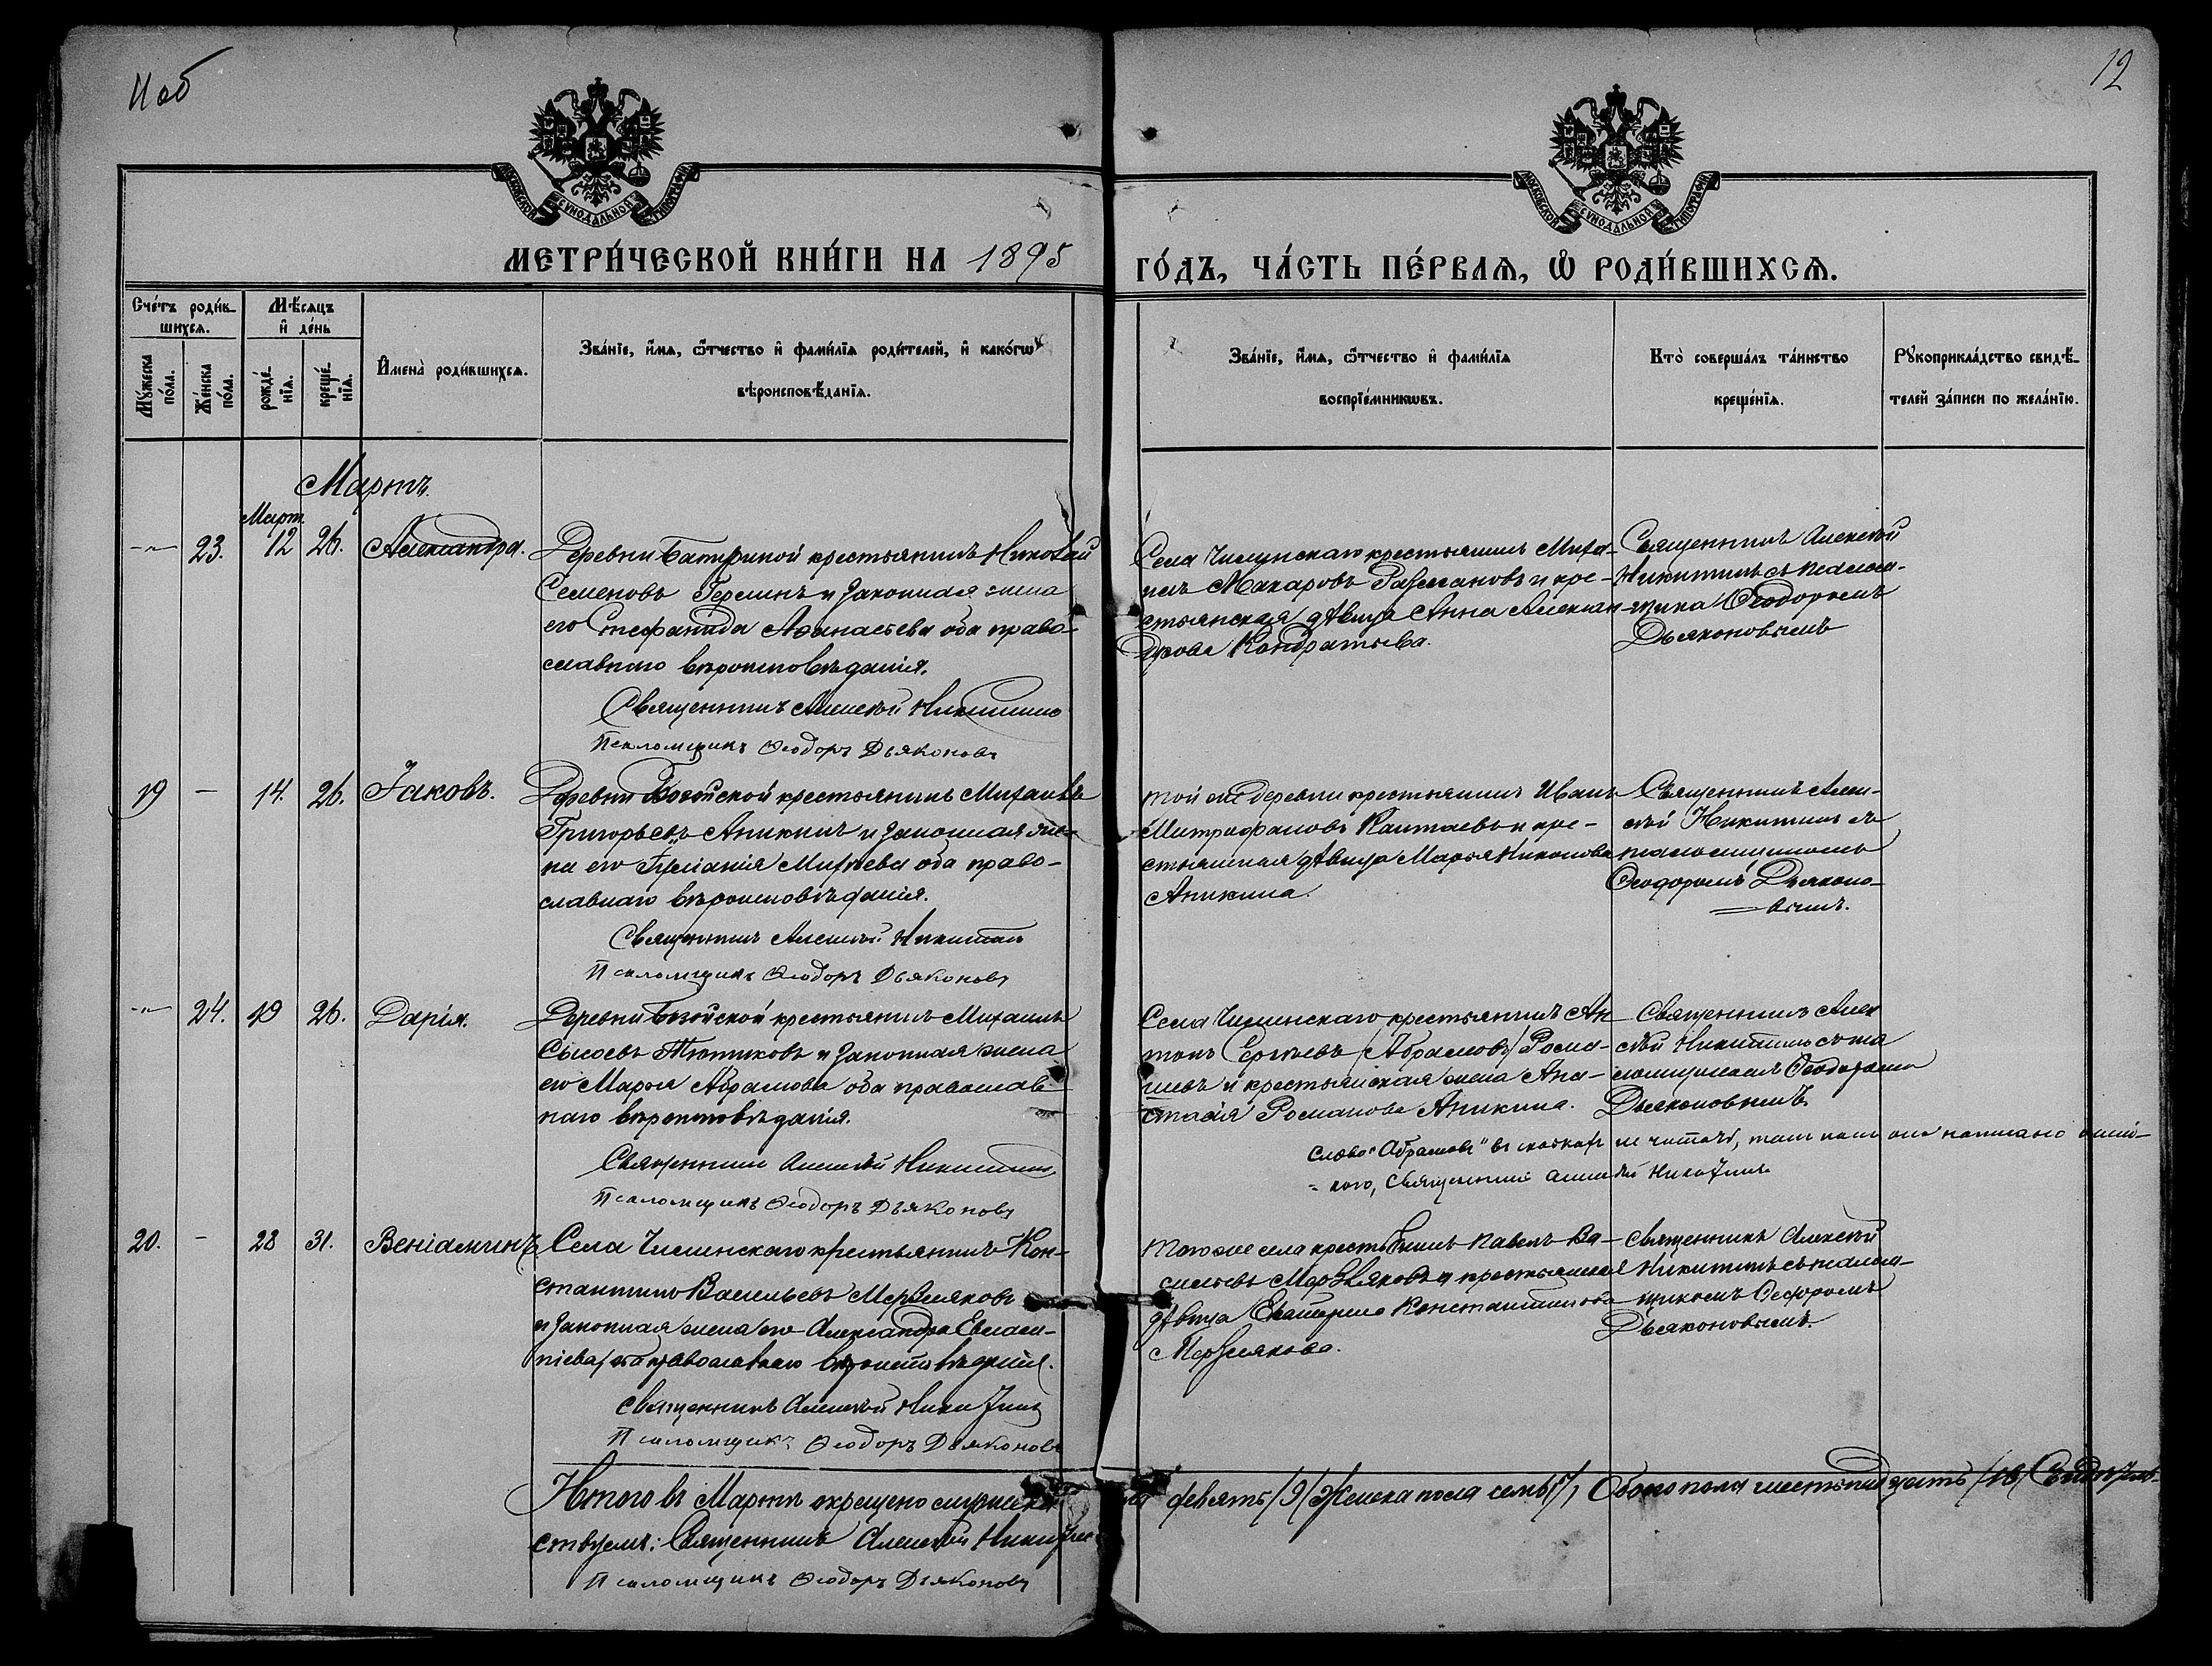 11 об
12
МОСКОВСКОЙ СѴНОДАЛЬНОЙ ТИПОГРАФІИ
МОСКОВСКОЙ СѴНОДАЛЬНОЙ ТИПОГРАФІИ
МЕТРИ́ЧЕСКОЙ КНИ́ГИ НА 1895
ГО́ДЪ, ЧА́СТЬ ПЕ́РВАѦ, Ѡ҆ РОДИ́ВШИХСѦ.
Сче́тъ роди́в-
шихсѧ.
Мѣ́сѧцъ
и҆ де́нь
Мꙋ́жеска
по́ла.
Же́нска
по́ла.
рожде́-
нїѧ.
креще́-
нїѧ.
И҆мена̀ роди́вшихсѧ.
Зва́нїе, и҆́мѧ, ѻ҆́тчество и҆ фами́лїѧ роди́телей, и҆ како́гѡ
вѣроисповѣ́данїѧ.
Зва́нїе, и҆́мѧ, ѻ҆́тчество и҆ фами́лїѧ
воспрїе́мникѡвъ.
Кто̀ соверша́лъ та́инство
креще́нїѧ.
Рꙋкоприкла́дство свидѣ́-
телей за́писи по жела́нїю.
Мартъ.
Март.
-"- 23. 12 26. Александра. Деревни крестьянинъ Николай
Семеновъ и законная жена
его Стефанида Аѳанасьева оба право-
славнаго вѣроисповѣданія.
Священникъ Алексѣй Никитинъ
Псаломщикъ Ѳеодоръ Дьяконовъ
Села крестьянинъ Миха-
илъ Макаровъ и кре-
стьянская дѣвица Анна Алексан-
дрова Кондратьева.
Священникъ Алексѣй
Никитинъ съ псалом-
щика Ѳеодоромъ
Дьяконовымъ
19 - 14. 26. Іаковъ. Деревни крестьянинъ Михаилъ
Григорьевъ Аникинъ и законная же-
на его Михѣева оба право-
славнаго вѣроисповѣданія.
Священникъ Алексѣй Никитинъ
Псаломщикъ Ѳеодоръ Дьяконовъ
той же деревни крестьянинъ Иванъ
Митрофановъ и кре-
стьянская дѣвица Марья Николова
Аникина.
Священникъ Алек-
сѣй Никитинъ съ
псаломщикомъ
Ѳеодоромъ Дьяконо-
вымъ.
-"- 24. 19 26. Дарія. Деревни крестьянинъ Михаилъ
Сысоевъ и законная жена
его Марья Абрамова оба православ-
наго вѣроисповѣданія.
Священникъ Алексѣй Никитинъ
Псаломщикъ Ѳеодоръ Дьяконовъ
Села крестьянинъ Ан-
тонъ Сергѣевъ /Абрамовъ/ Рома-
новъ и крестьянская жена Ана-
стасія Романова Аникина.
Священникъ Алек
сѣй Никитинъ съ пса
ломщикомъ Ѳеодоромъ
Дьяконовымъ.
слово "Абрамовъ" въ скобкахъ не читать, такъ какъ оно написано ошиб-
кого, Священникъ Алексѣй Никитинъ
20. - 28 31. Веніаминъ Села крестьянинъ Кон-
стантинъ Васильевъ Мерзляковъ
и законная жена его Александра Евлам-
піева оба православнаго вѣроисповѣданія.
Священникъ Алексѣй Никитинъ
Псаломщикъ Ѳеодоръ Дьяконовъ
того же села крестьянинъ Павелъ Ва-
сильевъ Мерзляковъ и крестьянская
дѣвица Екатерина Константинова
Мерзлякова.
Священникъ Алексѣй
Никитинъ съ псалом-
щикомъ Ѳеодоромъ
Дьяконовымъ.
Итого въ Мартѣ окрещено девять /9/ Женска пола семь /7/, Обоего пола шестьнадцать /16/
Священникъ Алексѣй Никитинъ
Псаломщикъ Ѳеодоръ Дьяконовъ